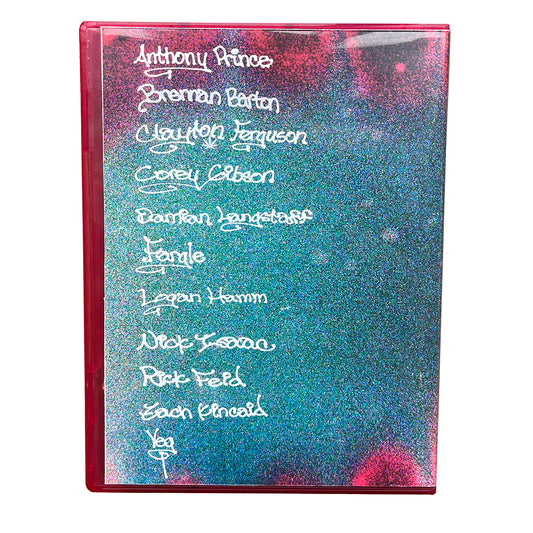 Anthony Prince
Brennan Barton
Clayton Ferguson
Corey Gibson
Damian Langstaff
Fangle
Logan Hamm
Nick Isaac
Rick Feid
Zach Kincaid
Veg